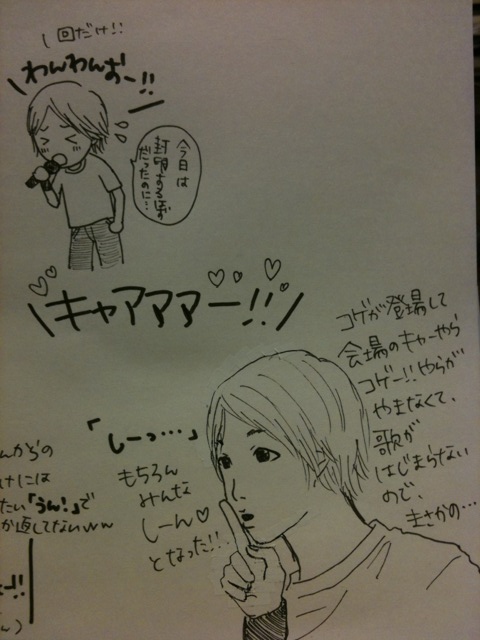 1回だけ!!
わんわんおー!!
今日は
封印するはず
だったのに!
キャアアアー!!
コゲが登場して
会場のキャーやら
コゲー!!やらが
やまなくて、
歌が
はじまらない
ので、
まさかの…
「しーっ…」
もちろん
みんな
しーん♡
となった!!
んからの
けには
たい「うん!」で
か返してないww
ー!!
ん)